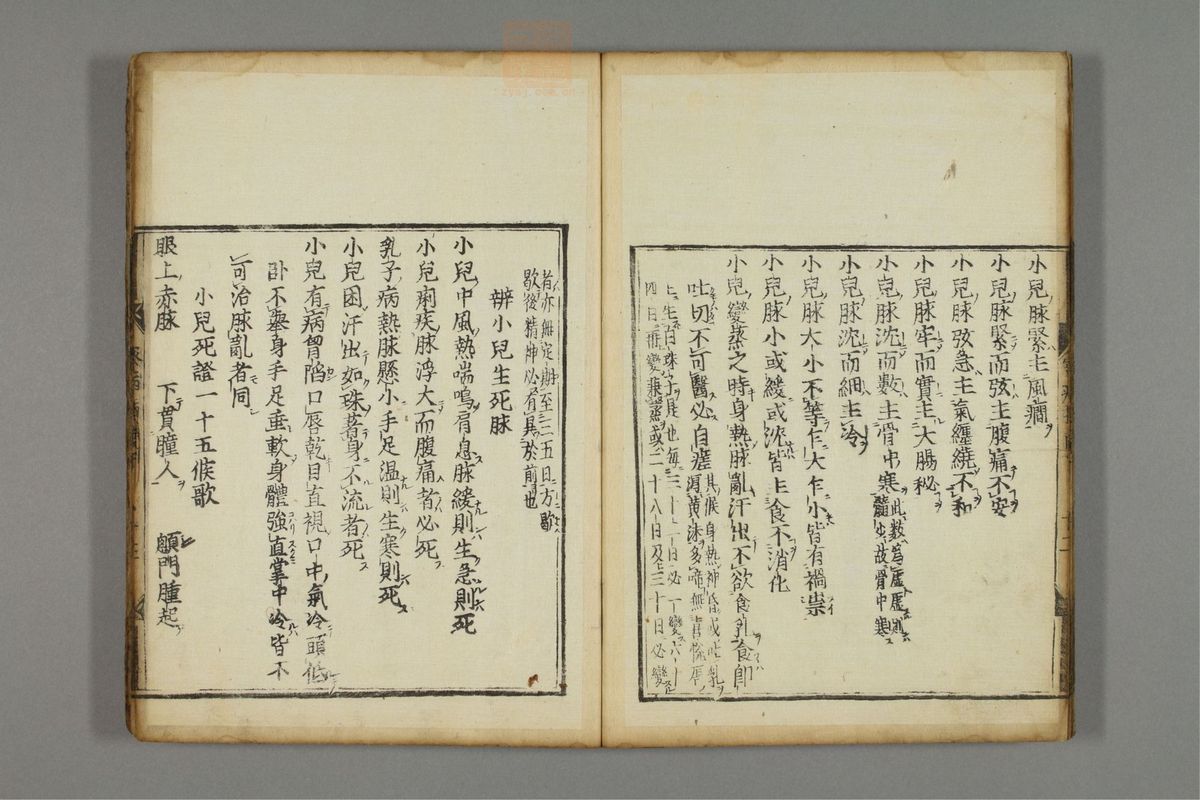 小兒脉緊主風癇
小兒脉緊而弦主腹痛不安
小兒脉弦急主氣纏繞不和
小兒脉牢而實主大腸秘
小兒脉沈而數主骨中寒此數爲虛虛則髓少故骨中寒
小兒脉沈而細主冷
小兒脉大小不等乍大乍小皆有禍祟
小兒脉小或緩或沈皆主食不消化
小兒變蒸之時身熱脉亂汗出不欲食乳食即
吐切不可醫必自瘥其候身熱神昏或吐乳瀉黄沫多啼無喜
上生白珠子是也每三十二日必一變六十
四日一變兼蒸或二十八日及三十日必變
者亦無定期至三五日方歇
歇後精神必有異於前也
辨小兒生死脉
小兒中風熱喘嗚肩息脉緩則生急則死
小兒痢疾脉浮大而腹痛者必死
乳子病熱脉懸小手足温則生寒則死
小兒困汗出如珠著身不流者死
小兒有病胷陷口唇乾目直視口中氣冷頭低
卧不舉身手足垂軟身體強直掌中冷皆不
可治脉亂者同
小兒死證一十五候歌
眼上赤脉 下貫瞳人 顖門腫起